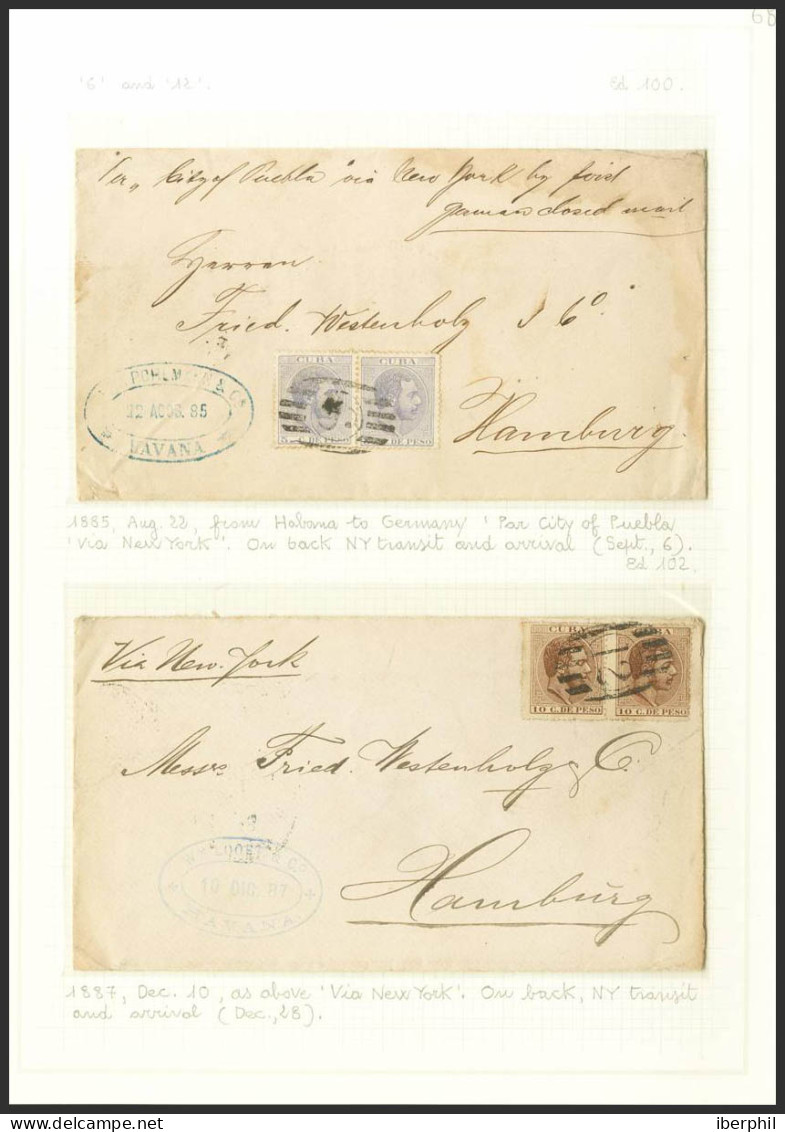 68
'6' and '12'.
Ed 100.
Per "City of Puebla" via New York by first
german closed mail
Herren
Fried. Westenholz & Co.
Hamburg.
POHLMANN & Co
22 AGOS. 85
HAVANA
CUBA CUBA
5 C. DE PESO DE PESO
1885, Aug. 22, from Habana to Germany 'Par City of Puebla
'via New York'. On back NY transit and arrival (Sept., 6).
Ed 102.
CUBA CUBA
12
10 C. DE PESO 10 C. DE PESO
Via New-York
Messrs Fried. Westenholz & C.
Hamburg
10 DIC. 87
HAVANA
1887, Dec. 10, as above 'Via New York'. On back, NY transit
and arrival (Dec., 28).
iberphil